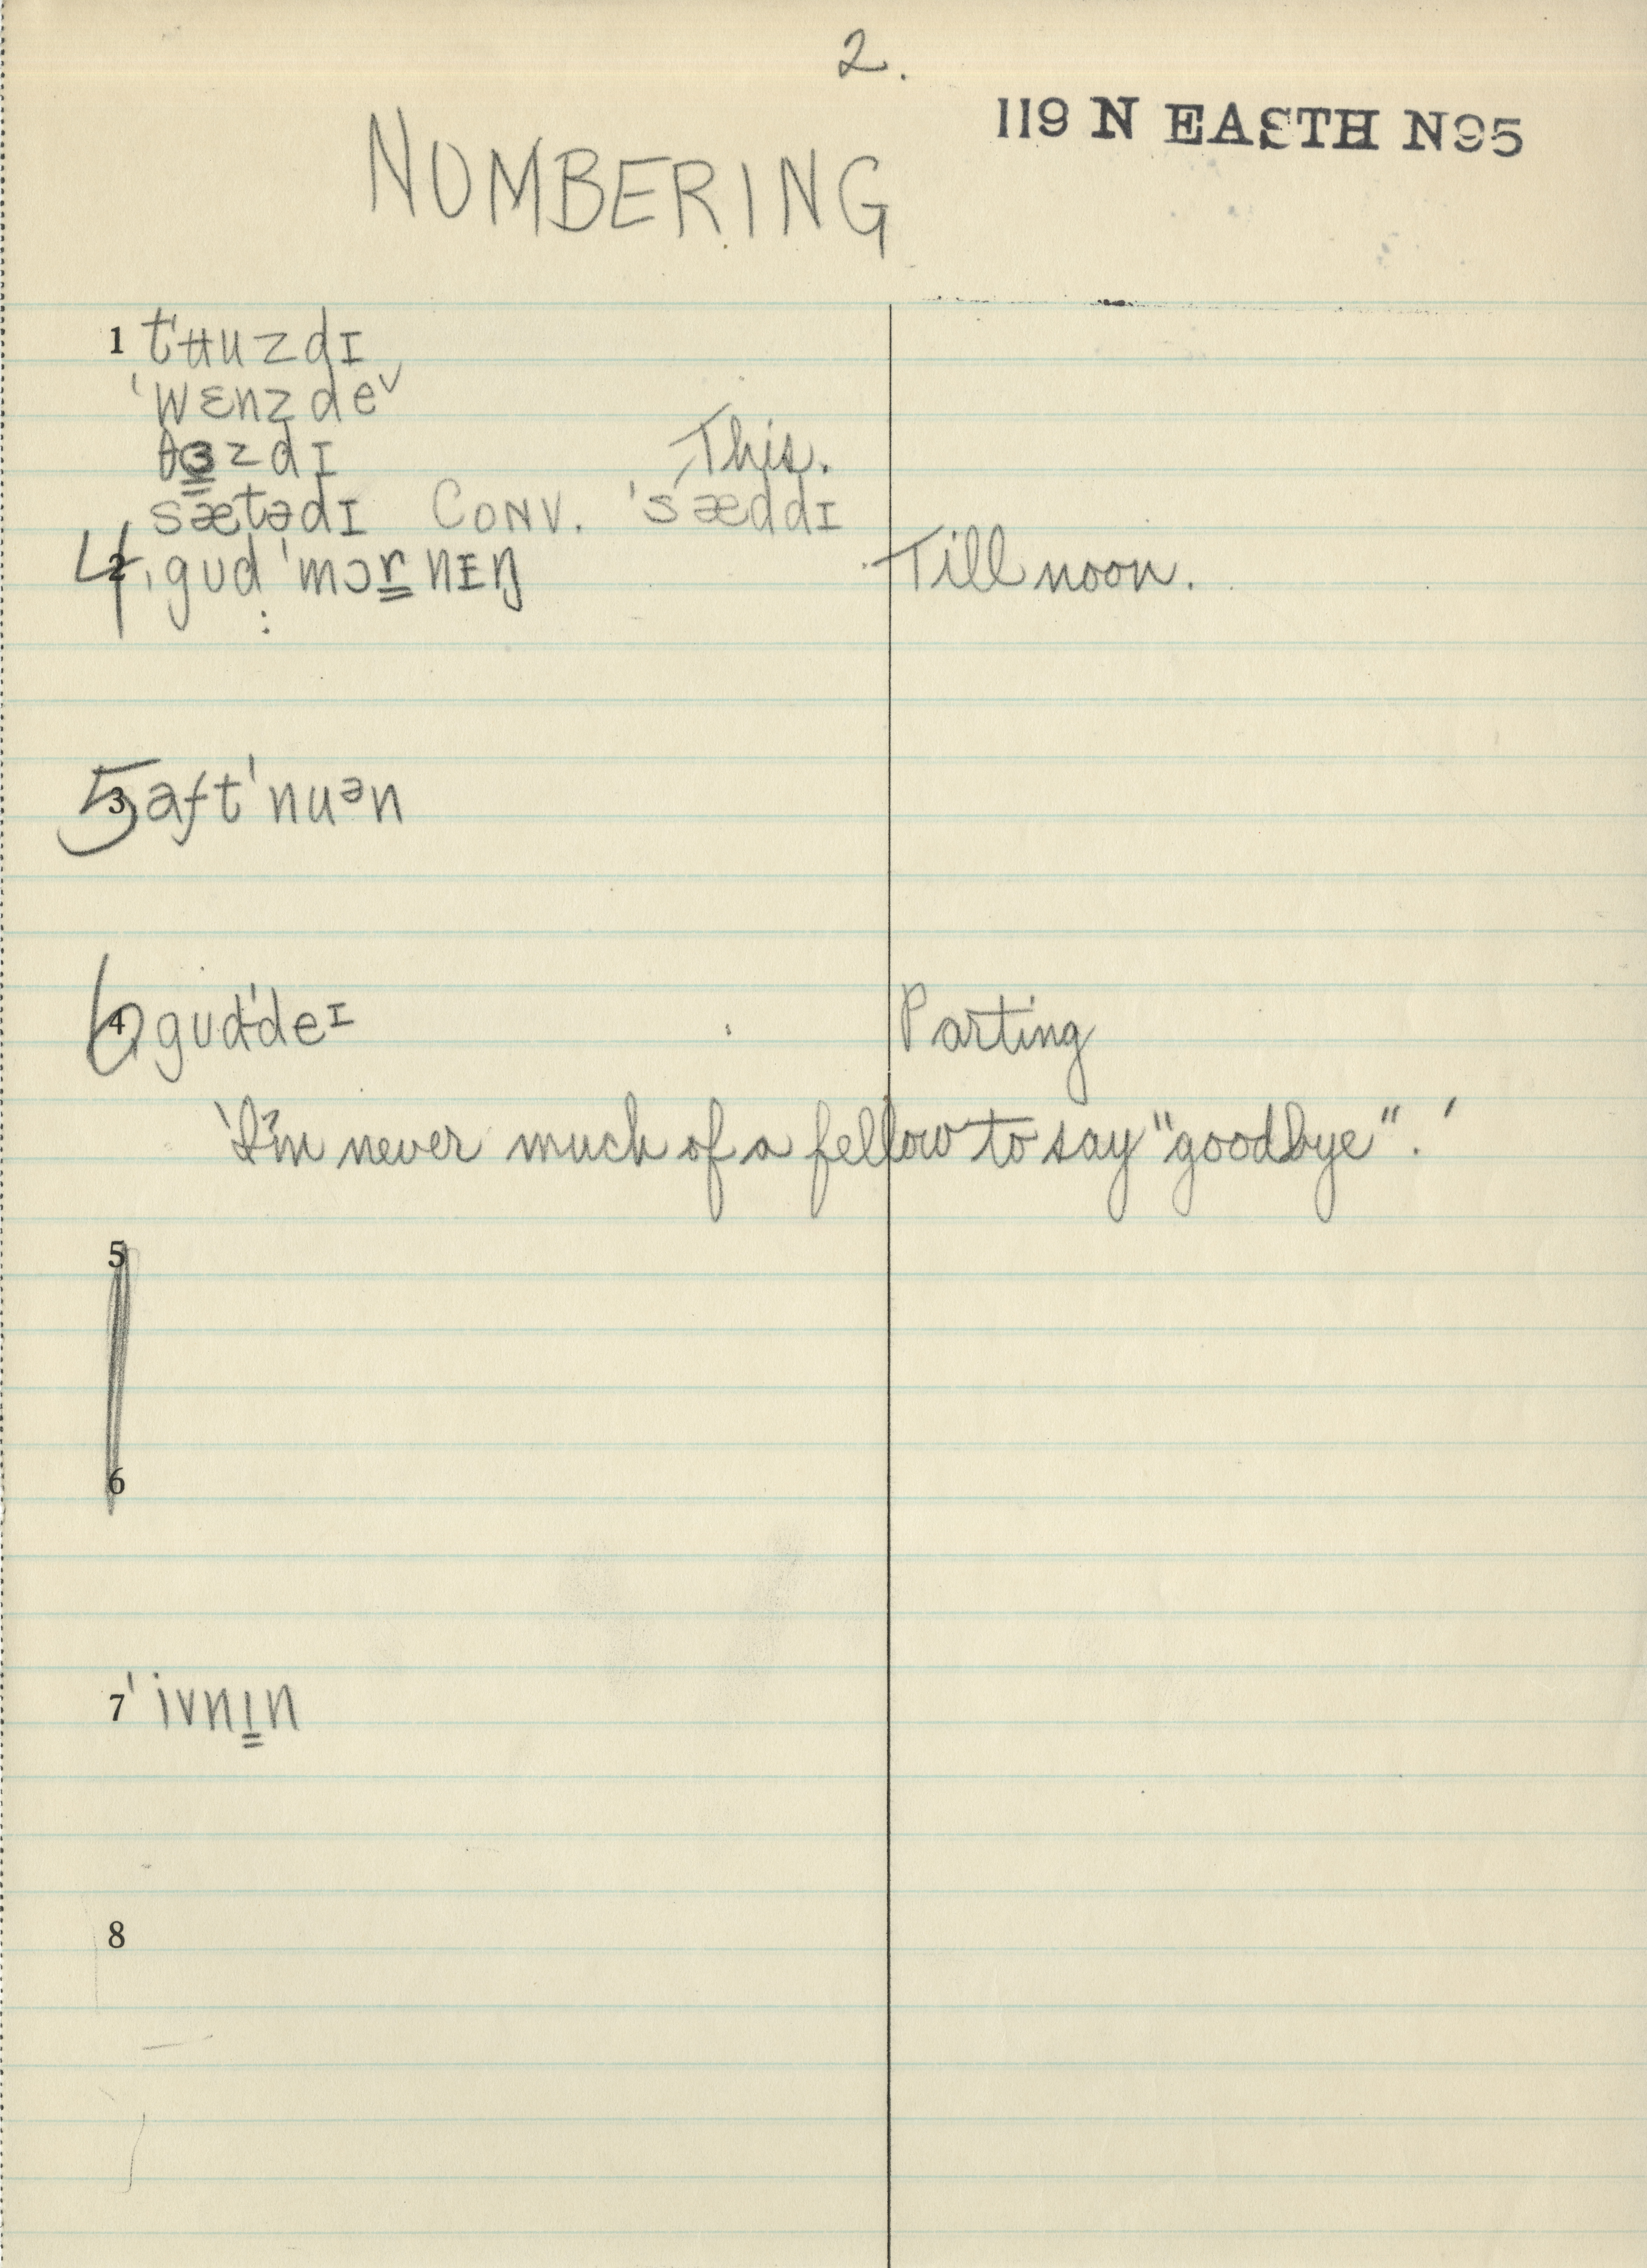 2.
119 N EASTH N95
NUMBERING
1 tʉuzdɪ
ˈwɛnzdeˇ
θɜzdɪ This.
sætədɪ CONV. ˈsæddɪ
4 2 ˌgud ˈmɔrnɪŋ Till noon.
5 3 aftˈnuᵊn
6 4 gudˈdeɪ Parting
'I'm never much of a fellow to say "goodbye".'
5
6
7 ˈivnɪn
8